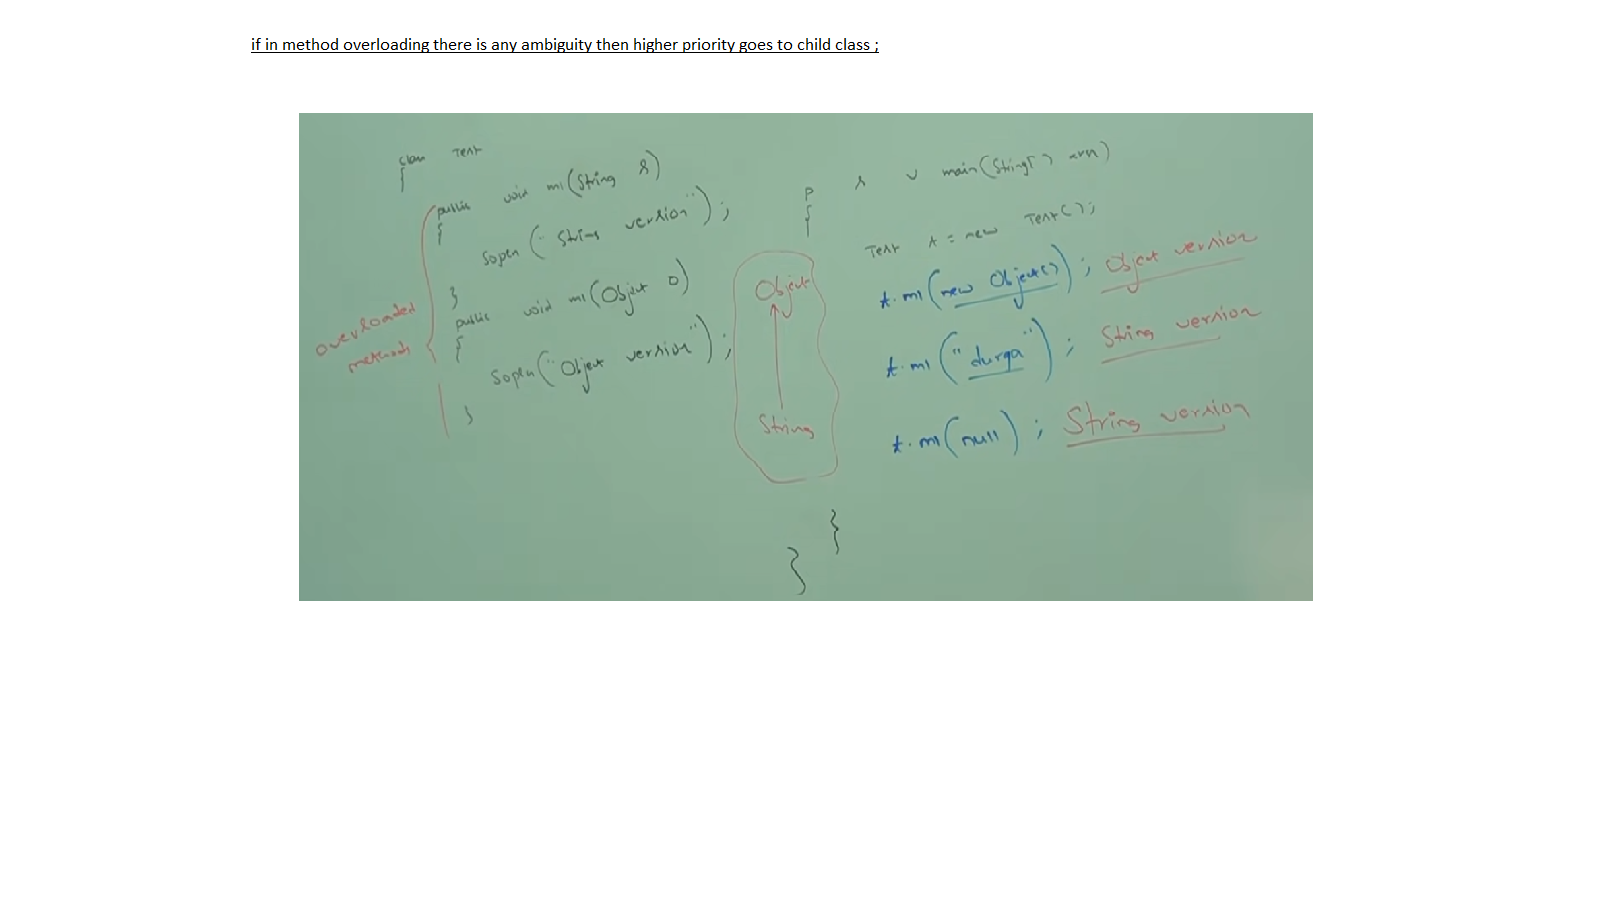 if in method overloading there is any ambiguity then higher priority goes to child class ;
class Test
{
public void m1(String s)
{
Sopln("String version");
}
public void m1(Object o)
{
Sopln("Object version");
}
overloaded
methods
Object
String
p s v main(String[])
{
Test t = new Test();
t.m1(new Object()); Object version
t.m1("durga"); String version
t.m1(null); String version
}
}